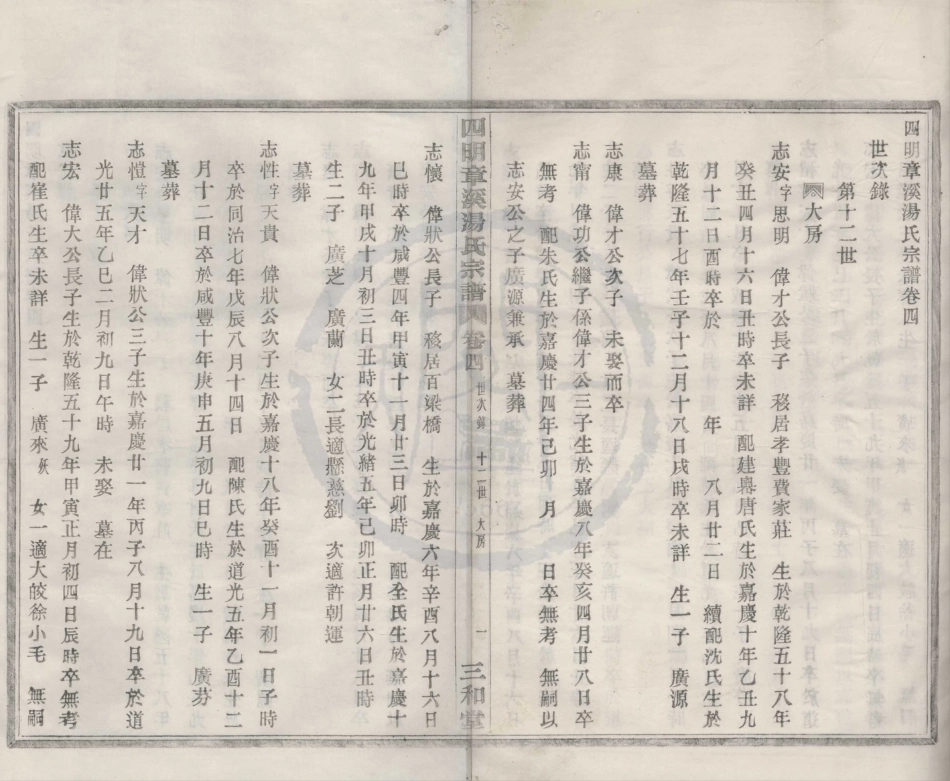 四明章溪湯氏宗譜卷四
世次錄
第十二世
大房
志安字思明 偉才公長子 移居孝豐費家莊 生於乾隆五十八年
癸丑四月十六日丑時卒未詳 配建𡺾唐氏生於嘉慶十年乙丑九
月十二日酉時卒於 年 八月廿二日 續配沈氏生於
乾隆五十七年壬子十二月十八日戌時卒未詳 生一子 廣源
墓葬
志康 偉才公次子 未娶而卒
志甯 偉功公繼子係偉才公三子生於嘉慶八年癸亥四月廿八日卒
無考 配朱氏生於嘉慶廿四年己卯 月 日卒無考 無嗣以
志安公之子廣源兼承 墓葬
四明章溪湯氏宗譜 卷四 世次錄 十二世 大房 一 三和堂
志懷 偉狀公長子 移居百梁橋 生於嘉慶六年辛酉八月十六日
巳時卒於咸豐四年甲寅十一月廿三日卯時 配全氏生於嘉慶十
九年甲戌十月初三日丑時卒於光緒五年己卯正月廿六日丑時
生二子 廣芝 廣蘭 女二長適懸慈劉 次適許朝運
墓葬
志性字天貴 偉狀公次子生於嘉慶十八年癸酉十一月初一日子時
卒於同治七年戊辰八月十四日 配陳氏生於道光五年乙酉十二
月十二日卒於咸豐十年庚申五月初九日巳時 生一子 廣芬
墓葬
志愷字天才 偉狀公三子生於嘉慶廿一年丙子八月十九日卒於道
光廿五年乙巳二月初九日午時 未娶 墓在
志宏 偉大公長子生於乾隆五十九年甲寅正月初四日辰時卒無考
配崔氏生卒未詳 生一子 廣來殀 女一適大皎徐小毛 無嗣